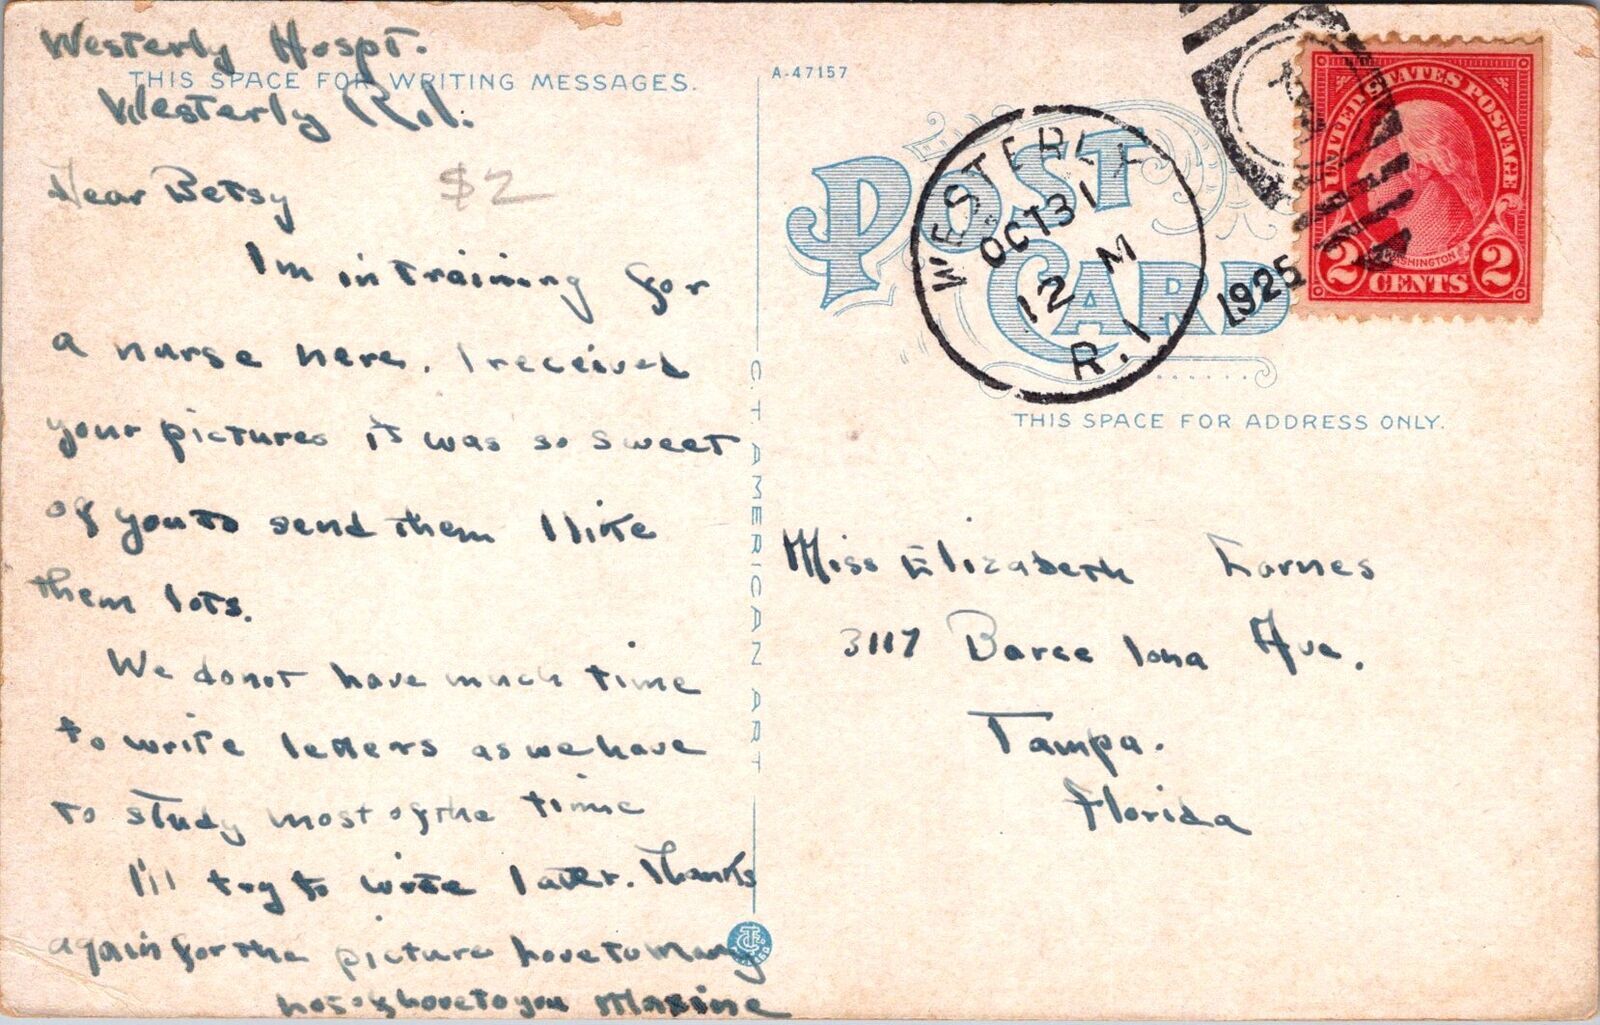 Westerly Hospt.
THIS SPACE FOR WRITING MESSAGES.
Westerly R.I.
Dear Betsy
$2
Im in training for
a nurse here. I received
your pictures it was so sweet
of you to send them I like
them lots.
We do not have much time
to write letters as we have
to study most of the time
I'll try to write later. Thanks
again for the picture love to Mary
lots of love to you Maxine
C. T. AMERICAN ART
A-47157
POST CARD
WESTERLY
OCT 31
12 M
R.I.
1925
UNITED STATES POSTAGE
WASHINGTON
2 CENTS 2
THIS SPACE FOR ADDRESS ONLY.
Miss Elizabeth
3117 Ave.
Tampa.
Florida